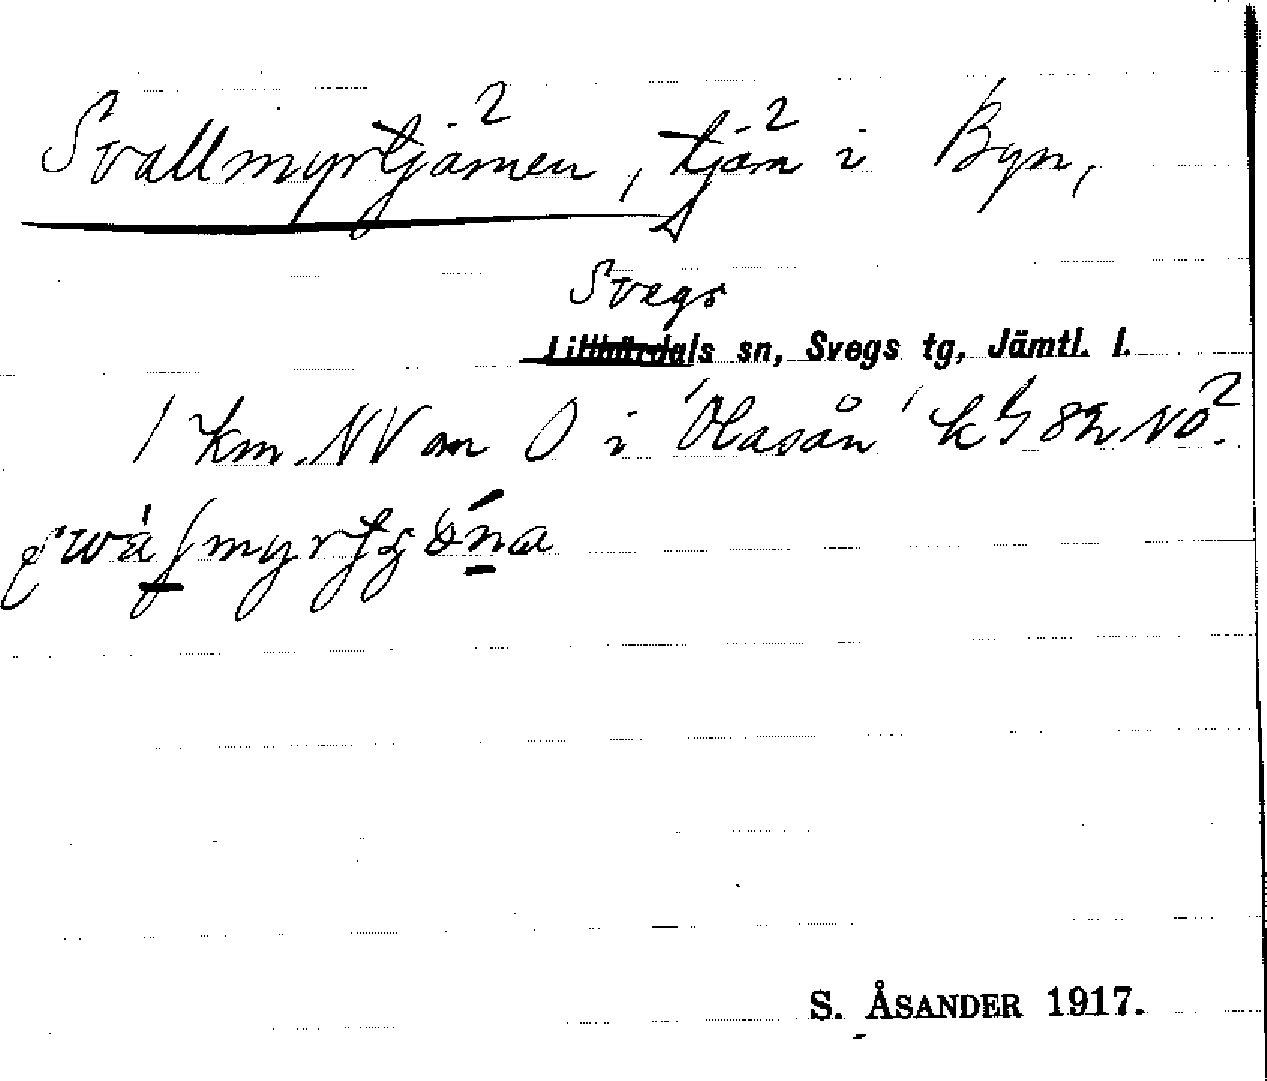 Svallmyrtjärnen², tjärn² i Byn,
Svegs
Lillhärdals sn, Svegs tg, Jämtl. l.
1 km. NV om O i 'Olasån' k bl 82 NO².
S. ÅSANDER 1917.